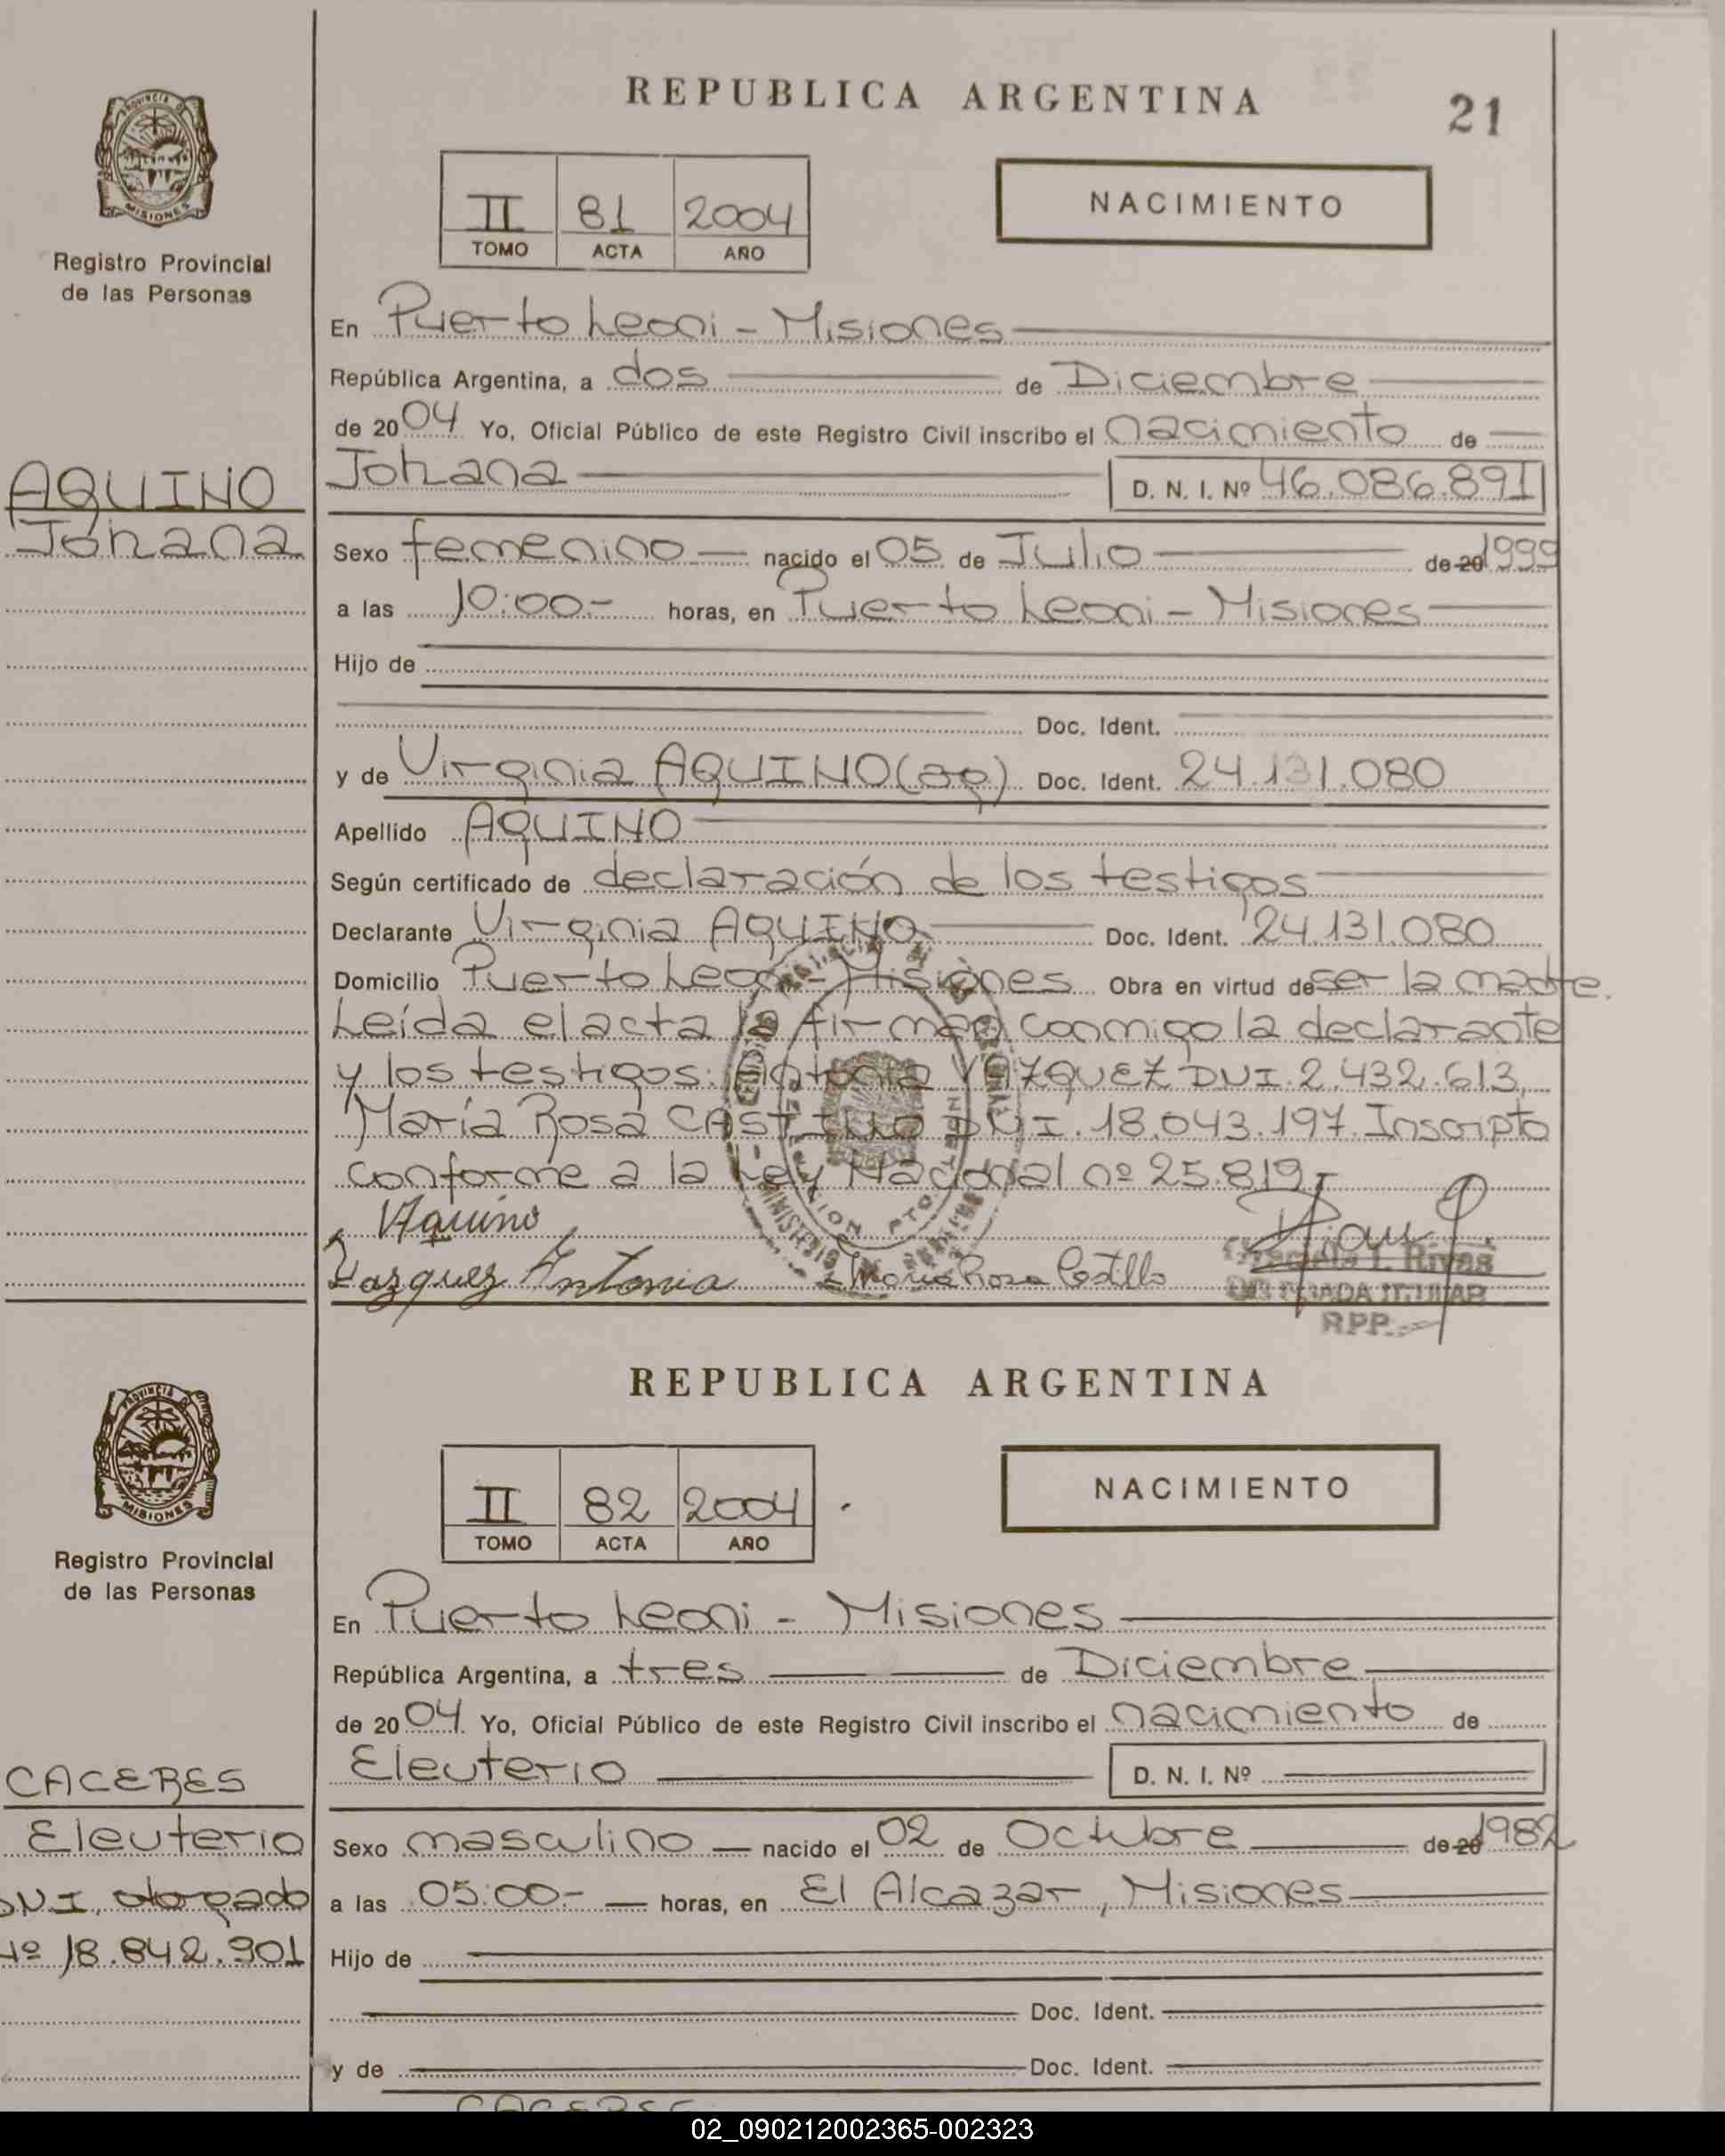 REPUBLICA ARGENTINA
21
PROVINCIA DE
MISIONES
Registro Provincial
de las Personas
II 81 2004
TOMO ACTA AÑO
NACIMIENTO
En Puerto Leoni - Misiones
República Argentina, a dos de Diciembre
de 2004 Yo, Oficial Público de este Registro Civil inscribo el nacimiento de
Johana D. N. I. Nº 46.086.891
AQUINO
Johana
Sexo femenino nacido el 05 de Julio de 20 1999
a las 10:00.- horas, en Puerto Leoni - Misiones
Hijo de
Doc. Ident.
y de Virginia AQUINO (ag) Doc. Ident. 24.131.080
Apellido AQUINO
Según certificado de declaración de los testigos
Declarante Virginia AQUINO Doc. Ident. 24.131.080
Domicilio Puerto Leoni - Misiones Obra en virtud de ser la madre.
Leída el acta la firman conmigo la declarante
y los testigos: Antonia VAZQUEZ DNI. 2.432.613,
María Rosa CASTILLO DNI. 18.043.197. Inscripto
conforme a la Ley Nacional nº 25.819.-
VAquino
Vazquez Antonia Maria Rosa Castillo
I. Rivas
TITULAR
RPP.
REPUBLICA ARGENTINA
PROVINCIA DE
MISIONES
Registro Provincial
de las Personas
II 82 2004
TOMO ACTA AÑO
NACIMIENTO
En Puerto Leoni - Misiones
República Argentina, a tres de Diciembre
de 2004 Yo, Oficial Público de este Registro Civil inscribo el nacimiento de
Eleuterio D. N. I. Nº
CACERES
Eleuterio
DNI, otorgado
Nº 18.842.901
Sexo masculino nacido el 02 de Octubre de 20 1982
a las 05:00.- horas, en El Alcazar, Misiones
Hijo de
Doc. Ident.
y de Doc. Ident.
CACERES
02_090212002365-002323